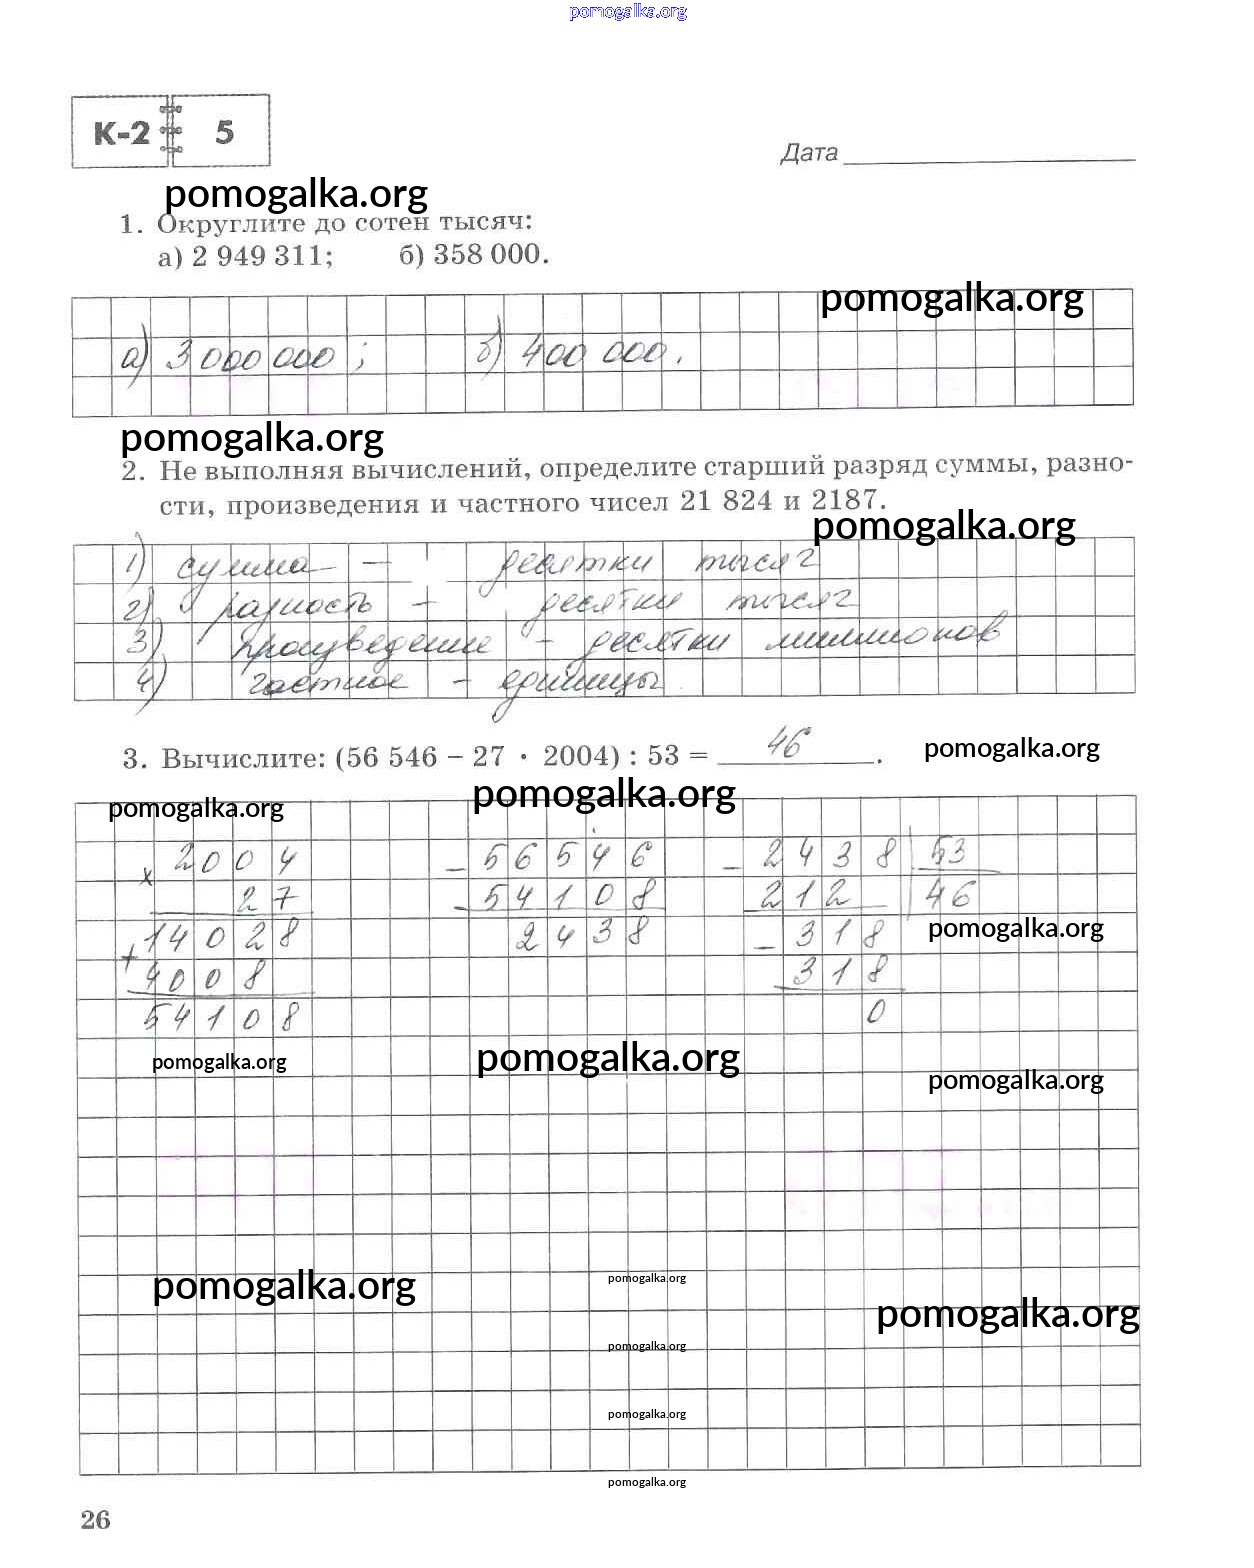 pomogalka.org
К-2 5
Дата
pomogalka.org
1. Округлите до сотен тысяч:
а) 2 949 311; б) 358 000.
pomogalka.org
а) 3 000 000; б) 400 000.
pomogalka.org
2. Не выполняя вычислений, определите старший разряд суммы, разно-
сти, произведения и частного чисел 21 824 и 2187.
pomogalka.org
1) сумма – десятки тысяч
2) разность – десятки тысяч
3) произведение – десятки миллионов
4) частное – единицы
3. Вычислите: (56 546 – 27 · 2004) : 53 = 46.
pomogalka.org
pomogalka.org
pomogalka.org
x 2004 – 56546 – 2438 | 53
27 – 54108 212 | 46
+ 14028 2438 – 318
pomogalka.org
4008 318
54108 0
pomogalka.org
pomogalka.org
pomogalka.org
pomogalka.org
pomogalka.org
pomogalka.org
pomogalka.org
pomogalka.org
pomogalka.org
26